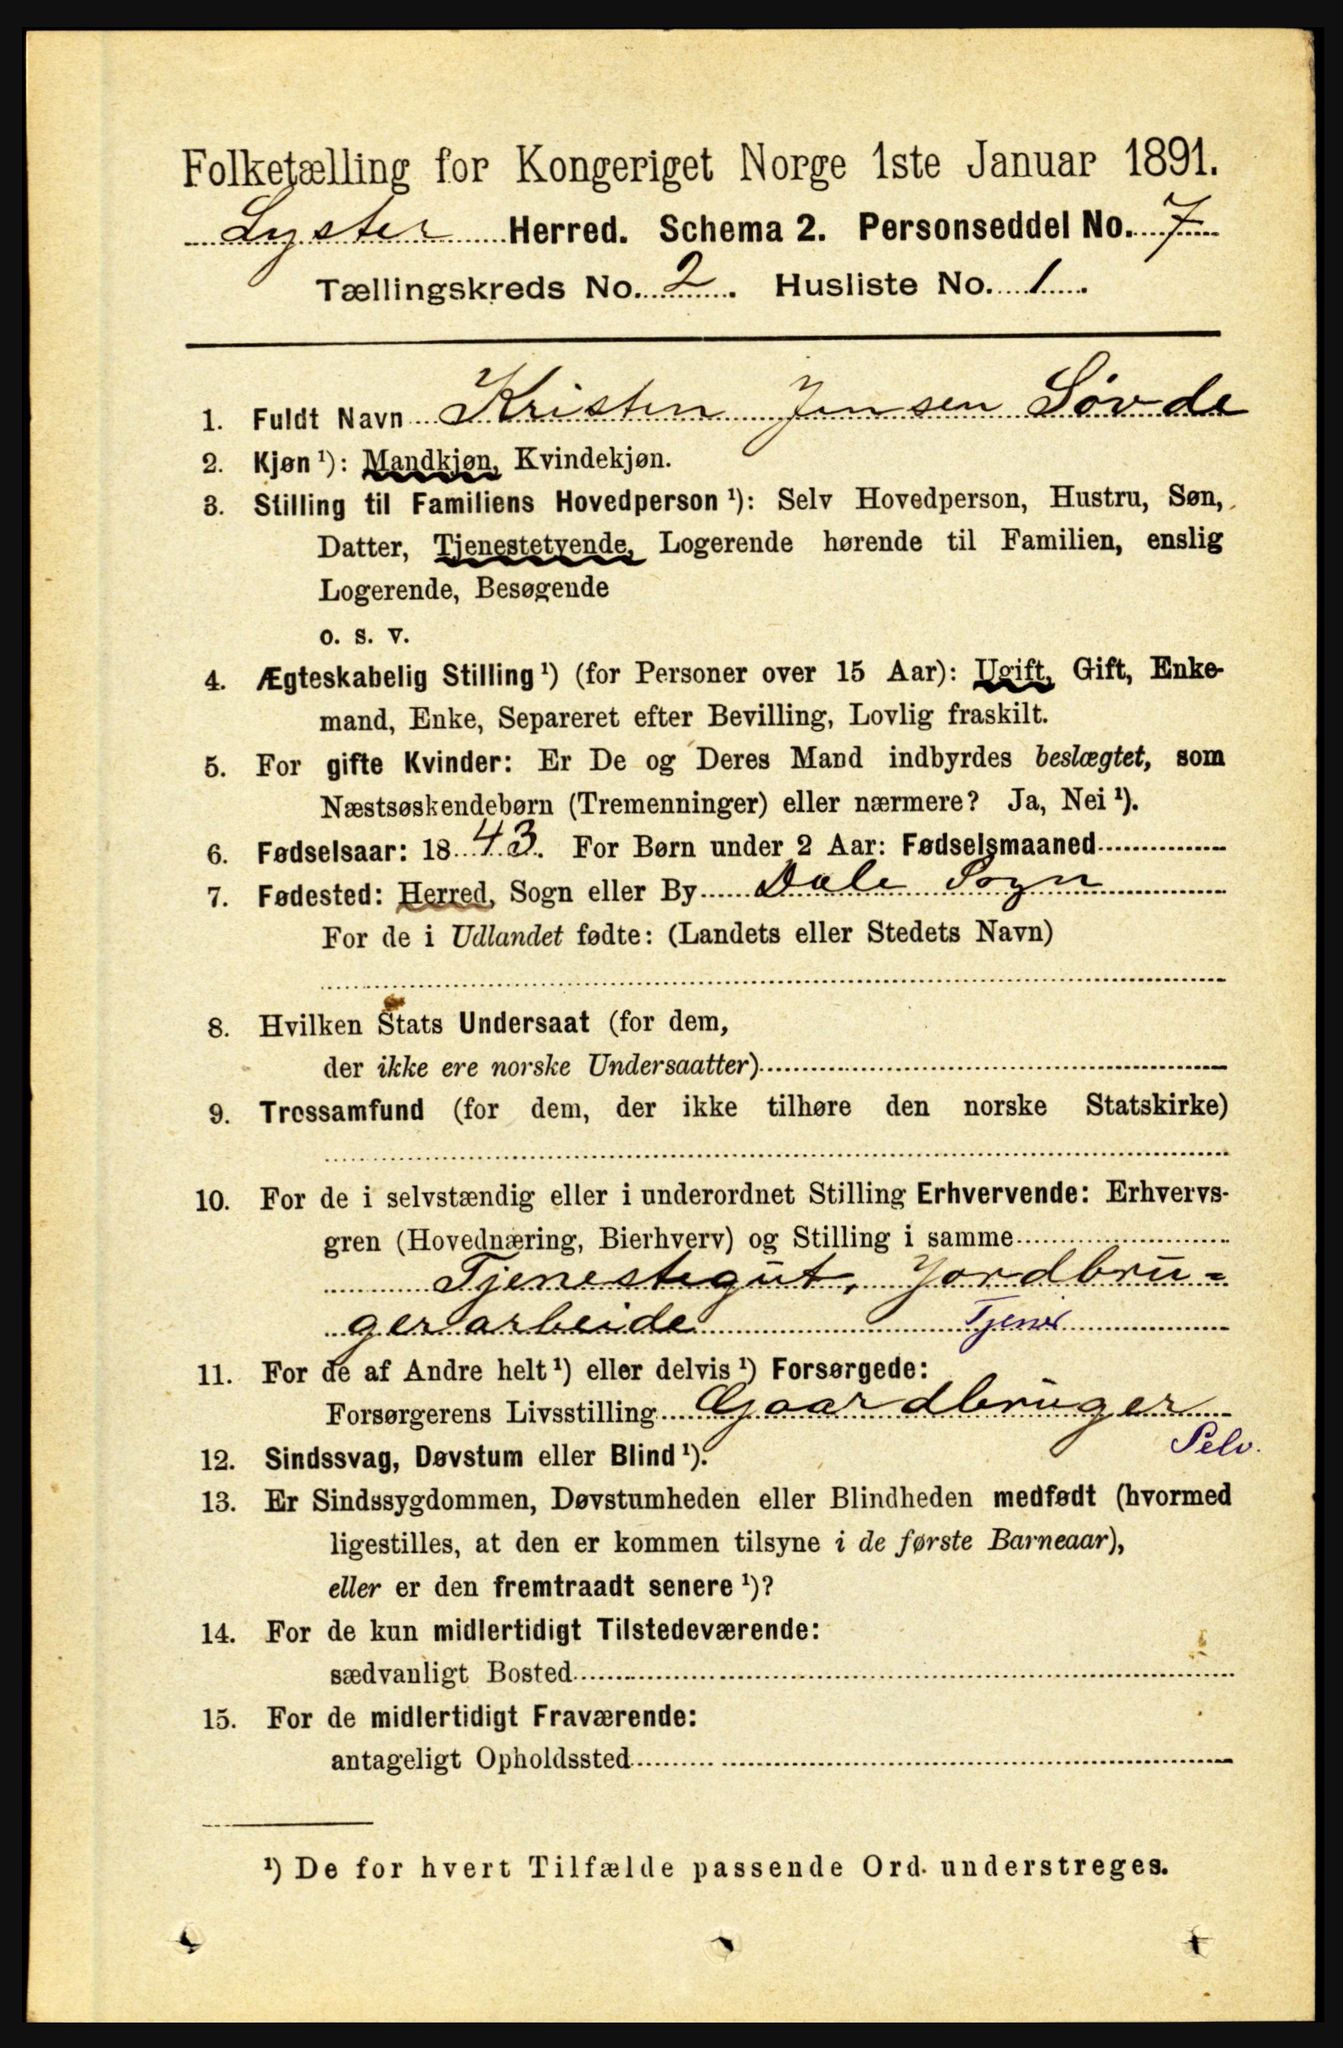 Folketælling for Kongeriget Norge 1ste Januar 1891.
Lyster Herred. Schema 2. Personseddel No. 7
Tællingskreds No. 2. Husliste No. 1.
1. Fuldt Navn Kristen Jensen Søvde
2. Kjøn ¹): Mandkjøn, Kvindekjøn.
3. Stilling til Familiens Hovedperson ¹): Selv Hovedperson, Hustru, Søn,
Datter, Tjenestetyende, Logerende hørende til Familien, enslig
Logerende, Besøgende
o. s. v.
4. Ægteskabelig Stilling ¹) (for Personer over 15 Aar): Ugift, Gift, Enke-
mand, Enke, Separeret efter Bevilling, Lovlig fraskilt.
5. For gifte Kvinder: Er De og Deres Mand indbyrdes beslægtet, som
Næstsøskendebørn (Tremenninger) eller nærmere? Ja, Nei ¹).
6. Fødselsaar: 1843. For Børn under 2 Aar: Fødselsmaaned
7. Fødested: Herred, Sogn eller By Dale Sogn
For de i Udlandet fødte: (Landets eller Stedets Navn)
8. Hvilken Stats Undersaat (for dem,
der ikke ere norske Undersaatter)
9. Trossamfund (for dem, der ikke tilhøre den norske Statskirke)
10. For de i selvstændig eller i underordnet Stilling Erhvervende: Erhvervs-
gren (Hovednæring, Bierhverv) og Stilling i samme
Tjenestegut, Jordbru-
gerarbeide Tjener
11. For de af Andre helt ¹) eller delvis ¹) Forsørgede:
Forsørgerens Livsstilling Gaardbruger
Selv.
12. Sindssvag, Døvstum eller Blind ¹).
13. Er Sindssygdommen, Døvstumheden eller Blindheden medfødt (hvormed
ligestilles, at den er kommen tilsyne i de første Barneaar),
eller er den fremtraadt senere ¹)?
14. For de kun midlertidigt Tilstedeværende:
sædvanligt Bosted
15. For de midlertidigt Fraværende:
antageligt Opholdssted
¹) De for hvert Tilfælde passende Ord understreges.